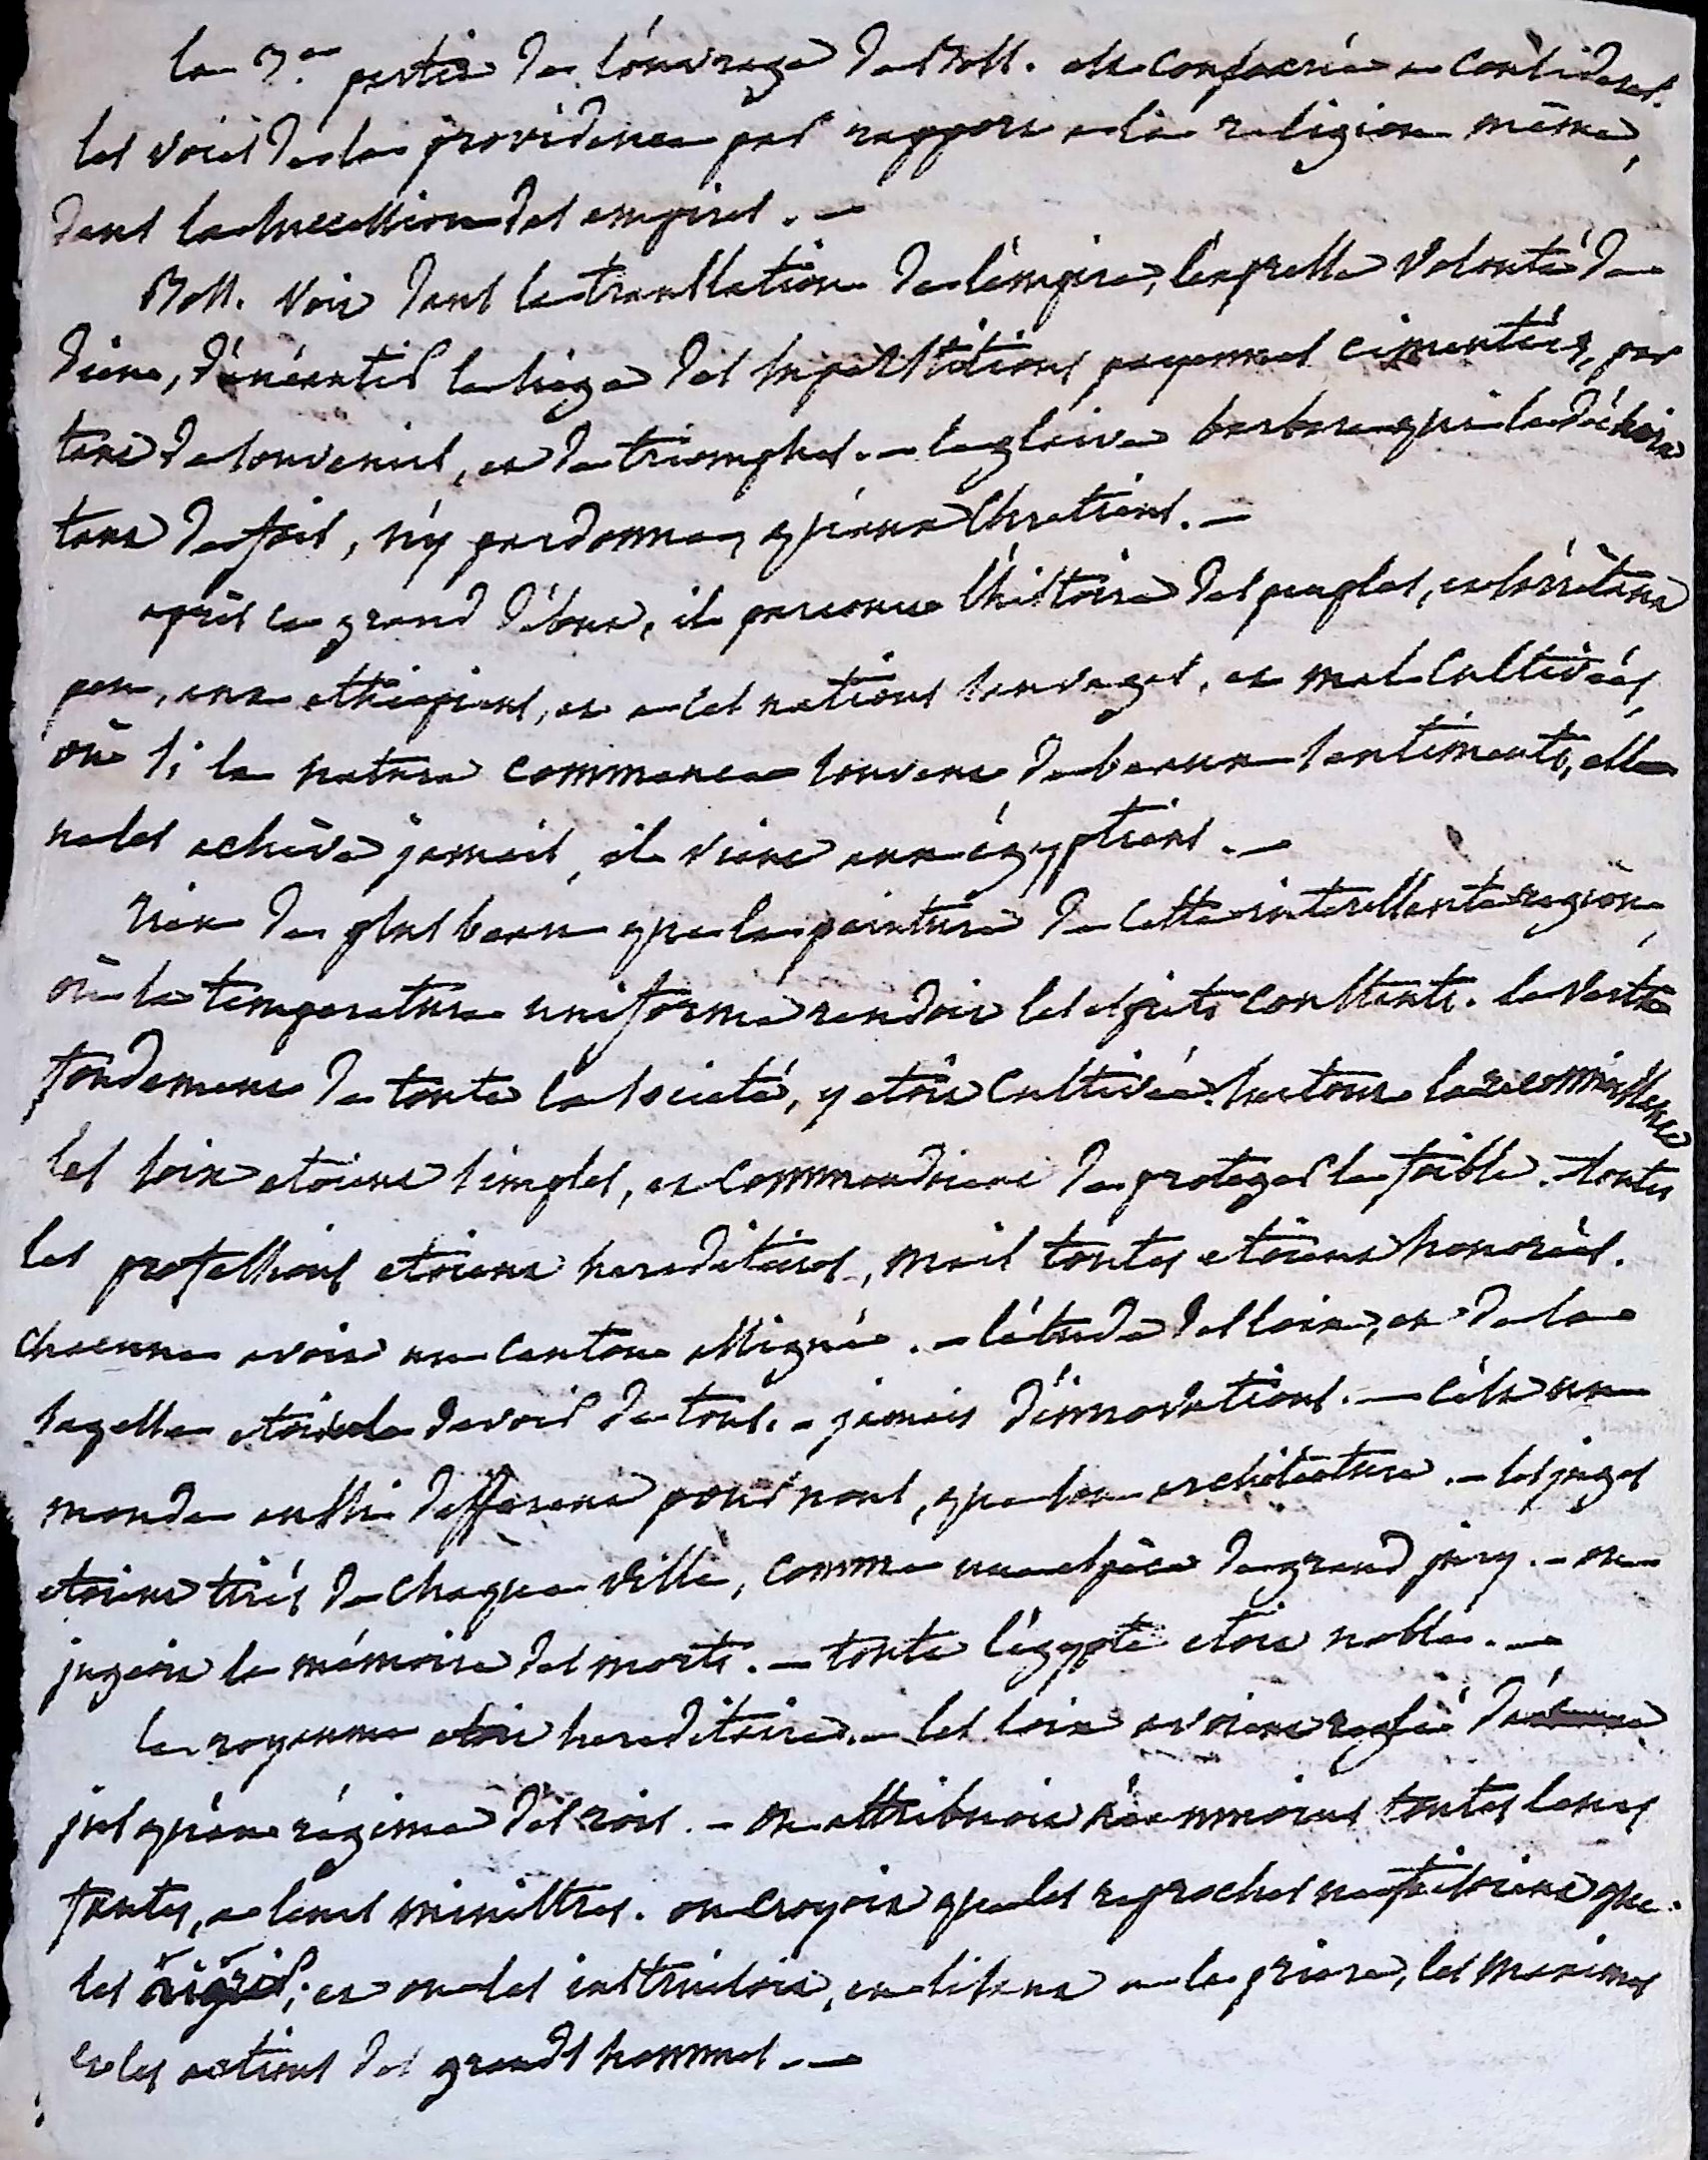 la 3.e partie de l'ouvrage de Boss. est consacrée a considerer
les voies de la providence par rapport a la religion même,
dans la succession des empires. —
Boss. voit dans la translation de l'empire, l'expresse volonté de
dieu, d'anéantir le siège des superstitions payennes cimentées, par
tant de souvenirs, et de triomphes. — le glaive barbare qui la déchira
tant de fois, n'y pardonna, qu'aux Chretiens. —
après ce grand début, il parcourt l'histoire des peuples, en s'arrêtant
peu, aux ethiopiens, et a ces nations sauvages, et mal cultivées,
où si la nature commence souvent de beaux sentiments, elle
ne les achève jamais, il vient aux égyptiens. —
rien de plus beau que la peinture de cette interessante region,
où la temperature uniforme rendoit les esprits constants. la vertu
fondement de toute la societé, y etoit cultivée. surtout la reconnoissance
les loix etoient simples, et commandoient de proteger le foible. toutes
les professions etoient hereditaires, mais toutes etoient honorées.
chacune avoit un canton assigné. — l'étude des loix, et de la
sagesse etoit le devoir de tous. — jamais d'innovations. — c'est un
monde aussi different pour nous, que son architecture. — les juges
etoient tirés de chaque ville, comme une espèce de grand jury. — on
jugeoit la mémoire des morts. — toute l'égypte etoit noble. —
le royaume etoit hereditaire. — les loix avoient reglé
jusqu'au régime des rois. — on attribuoit néanmoins toutes leurs
fautes, a leurs ministres. on croyoit que les reproches ne faisoient que
les aigrir; et on les instruisoit, en lisant a la priere, les maximes
et les actions des grands hommes. —